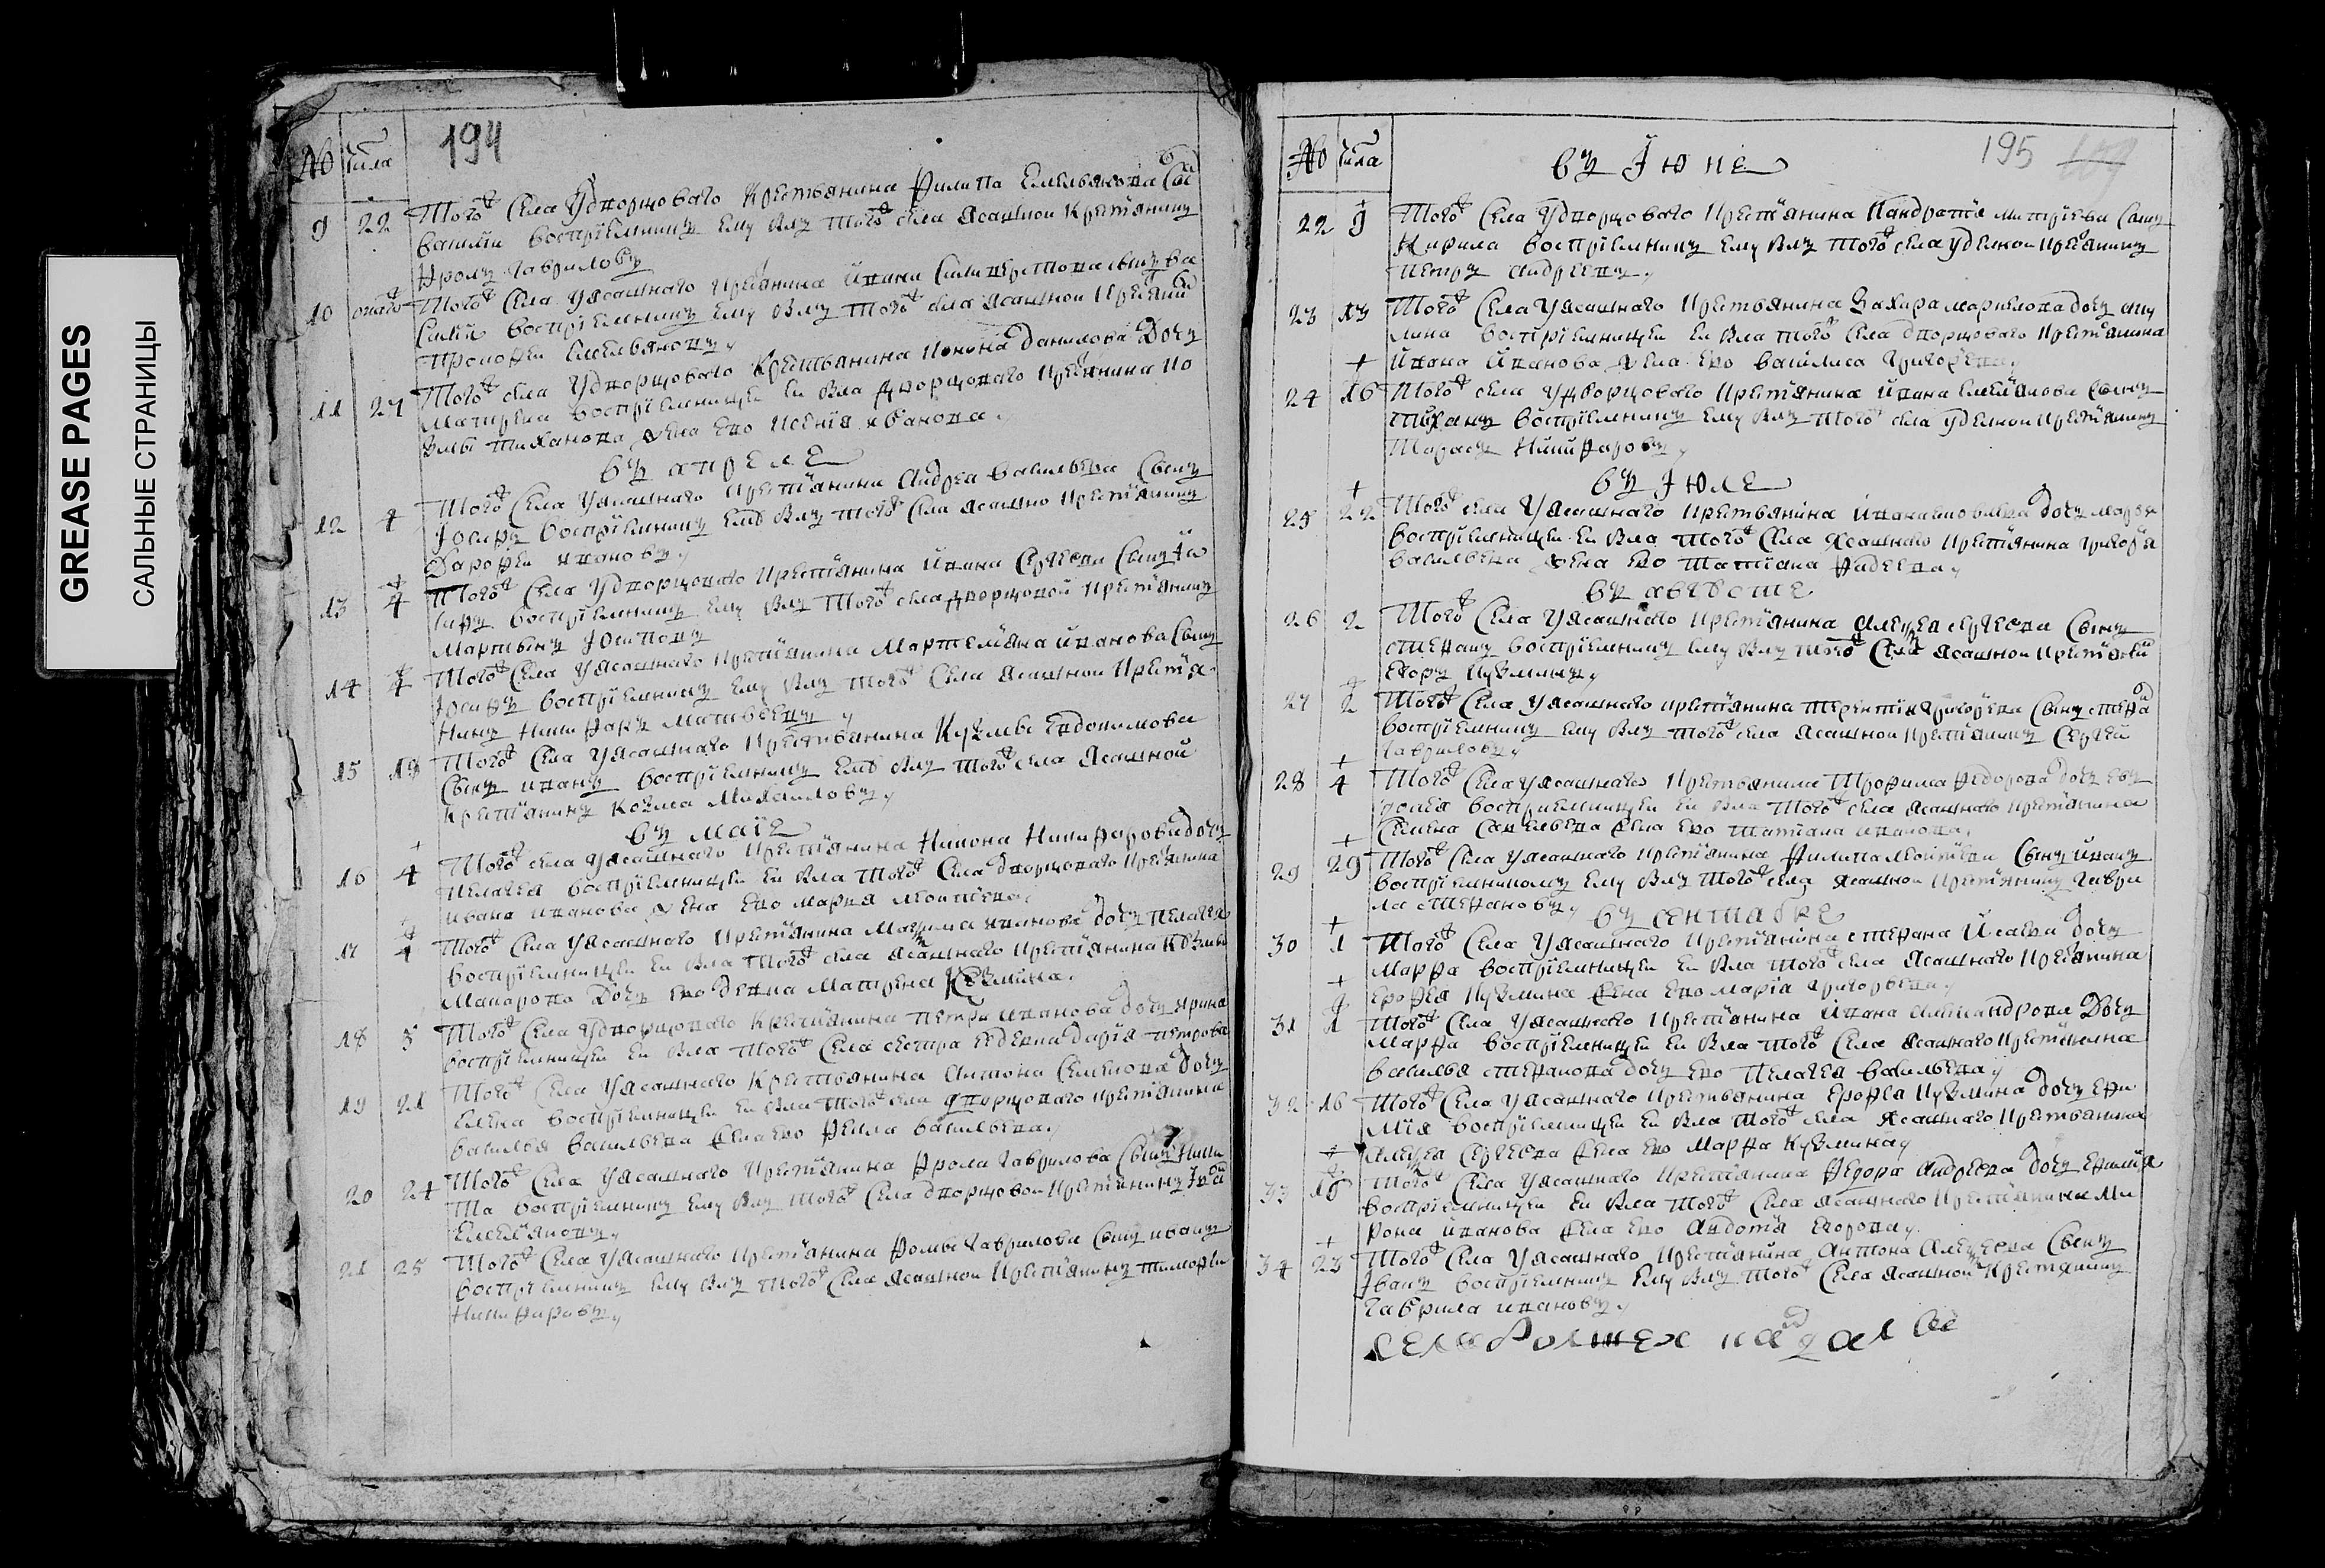 GREASE PAGES
САЛЬНЫЕ СТРАНИЦЫ
№ числа 194
9 22 Тогож села удворцоваго крестьянина Филипа Емельянова сынъ
Василий восприемникъ ему былъ тогож села ясашной крестьянинъ
Фролъ Гавриловъ
10 Тогож села уясашнаго крестянина Ивана сынъ Ва
силий восприемникъ ему былъ тогож села ясашной крестянинъ
Емельяновъ
11 27 Тогож села удворцоваго крестьянина Данилова дочь
Матрена восприемницей ей была дворцоваго крестянина Ко
змы Тиханова жена ево Ксения Иванова
въ апреле
12 4 Тогож села уясашнаго крестьянина Андрея Васильева сынъ
Іосифъ восприемникъ ему былъ тогож села ясашно крестьянинъ
Дорофеи Ивановъ
13 4 Тогож села удворцоваго крестьянина Ивана Сергеева сынъ Іо
сифъ восприемникъ ему былъ тогож села дворцовой крестьянинъ
Мартынъ Іосиповъ
14 4 Тогож села уясашнаго крестьянина Мартемьяна Иванова сынъ
Іосифъ восприемникъ ему былъ тогож села ясашной крестья
нинъ Никифаръ Матвеевъ
15 19 Тогож села уясашнаго крестьянина Кузмы Евдокимова
сынъ Иванъ восприемникъ ему былъ тогож села ясашной
крестьянинъ Козма Михаиловъ
въ маїе
16 4 Тогож села уясашнаго крестьянина Никона Никифарова дочь
Пелагея восприемницей ей была тогож села дворцоваго крестьянина
Ивана Иванова жена ево Мария
17 4 Тогож села уясашнаго крестьянина Максима Иванова дочь Пелагея
восприемницей ей была тогож села ясашнаго крестьянина Козмы
Макарова дочь ево девка Матрена Козмина
18 5 Тогож села удворцоваго крестьянина Петра Иванова дочь Ирина
восприемницей ей была тогож села сестра ее девка Дарїя Петрова
19 21 Тогож села уясашнаго крестьянина Антона Семенова дочь
Елена восприемницей ей была тогож села дворцоваго крестьянина
Василья Васильева жена ево Фекла Васильева
20 24 Тогож села уясашнаго крестьянина Фрола Гаврилова сынъ Ники
та восприемникъ ему былъ тогож села дворцовои крестьянинъ
Емельяновъ
21 25 Тогож села уясашнаго крестьянина Фомы Гаврилова сынъ Иванъ
восприемникъ ему былъ тогож села ясашнои крестьянинъ Тимофеи
Никифаровъ
№ числа въ Іюне 195 109
22 9 Тогож села удворцоваго крестьянина Кандратїя Митрїева сынъ
Кирила восприемникъ ему былъ тогож села удѣлнои крестьянинъ
Петръ Андреевъ
23 13 Тогож села уясашнаго крестьянина Захара Маркелова дочь аку
лина восприемницей ей была тогож села дворцоваго крестьянина
Ивана Иванова жена ево Василиса Григорьева
24 16 Тогож села удворцоваго крестьянина Ивана Емельянова сынъ
Тиханъ восприемникъ ему былъ тогож села удѣлнои крестьянинъ
Тарасъ Никифаровъ
въ Іюле
25 22 Тогож села уясашнаго крестьянина Ивана дочь
восприемницей ей была тогож села ясашнаго крестьянина Григорїя
Васильева жена ево Татїана Фадеева
въ августе
26 2 Тогож села уясашнаго крестьянина Алексея Сергеева сынъ
Степанъ восприемникъ ему былъ тогож села ясашнои крестьянинъ
Егоръ Кузминъ
27 2 Тогож села уясашнаго крестьянина Терентїя Григорева сынъ Стефанъ
восприемникъ ему былъ тогож села ясашнои крестьянинъ Сергей
Гавриловъ
28 4 Тогож села уясашнаго крестьянина Трофима Федорова дочь Ев
восприемницей ей была тогож села ясашнаго крестьянина
Семена Савельева жена ево Татїана Иванова
29 29 Тогож села уясашнаго крестьянина Филипа сынъ Иванъ
восприемникомъ ему былъ тогож села ясашнои крестьянинъ Гаври
ла Стефановъ
въ сентябре
30 1 Тогож села уясашнаго крестьянина Стефана Исаева дочь
Марфа восприемницей ей была тогож села ясашнаго крестьянина
Ерофея Кузмина жена ево Марїа Григорьева
31 1 Тогож села уясашнаго крестьянина Ивана Александрова дочь
Марфа восприемницей ей была тогож села ясашнаго крестьянина
Василья Стефанова дочь ево Пелагея Васильева
32 16 Тогож села уясашнаго крестьянина Ерофея Кузмина дочь Ефи
мїя восприемницей ей была тогож села ясашнаго крестьянина
Алексея Сергеева жена ево Марфа Кузмина
33 16 Тогож села уясашнаго крестьянина Федора Андреева дочь Ефимїя
восприемницей ей была тогож села ясашнаго крестьянина Ми
рона Иванова жена ево Авдотїя Егорова
34 23 Тогож села уясашнаго крестьянина Антона Алексеева сынъ
Іванъ восприемникъ ему былъ тогож села ясашнои крестьянинъ
Гаврила Ивановъ
села